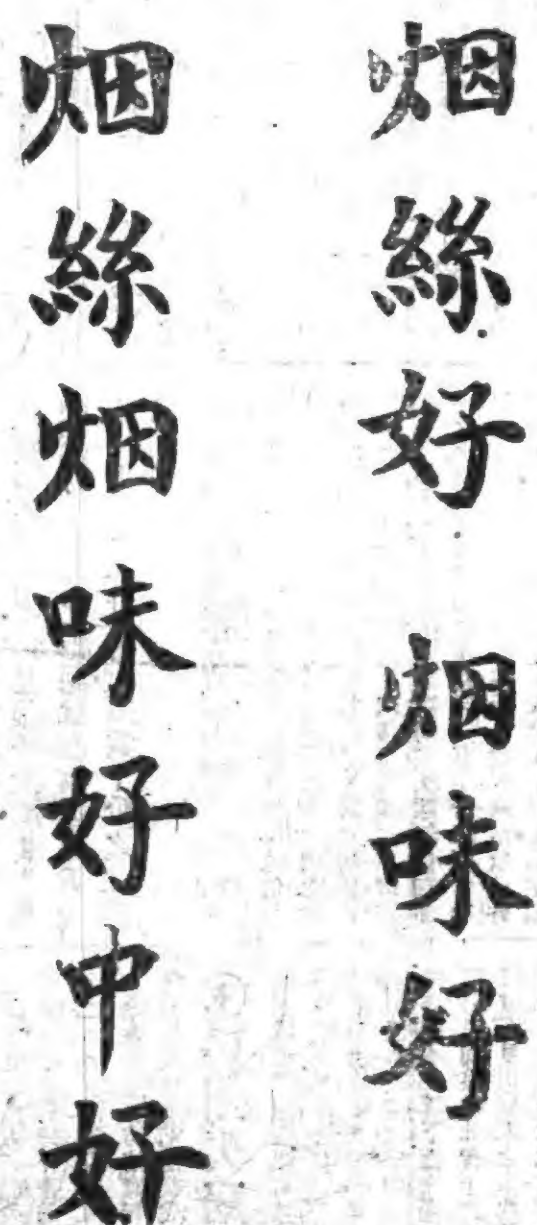 烟絲好 烟味好
烟絲烟味好中好